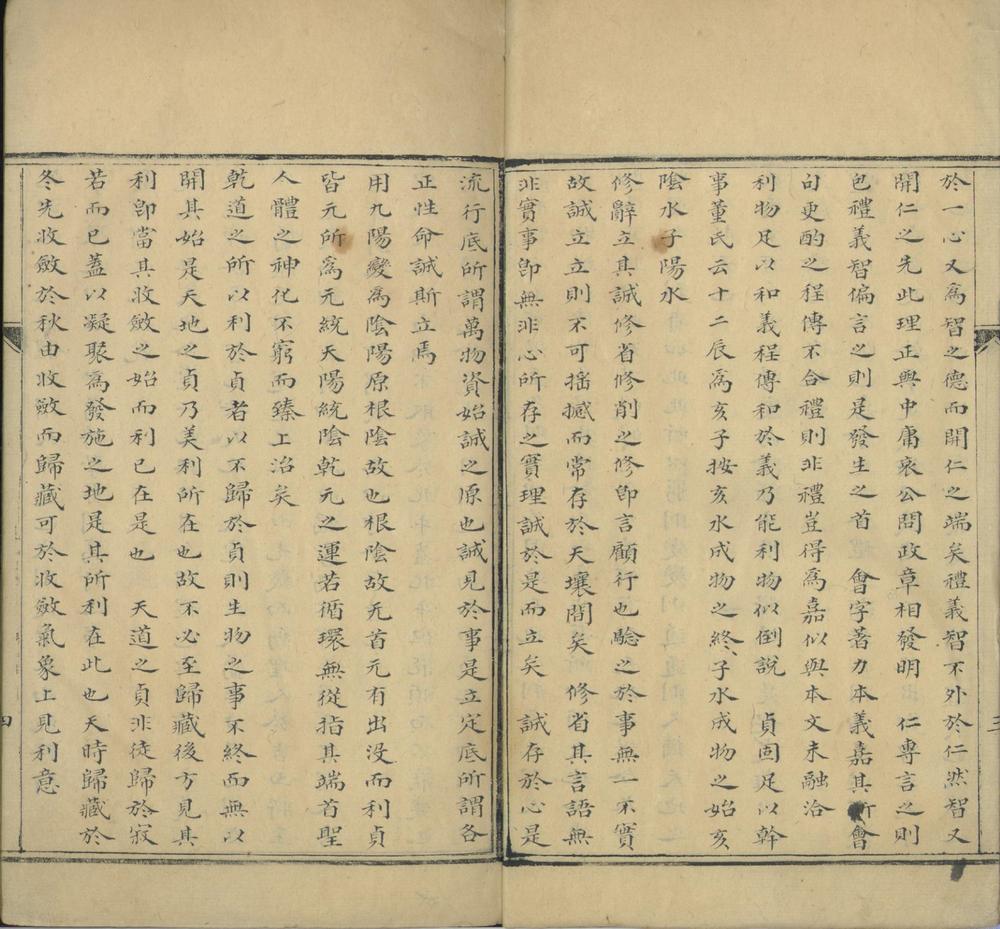 於一心又爲智之德而開仁之端矣禮義智不外於仁然智又
開仁之先此理正與中庸哀公問政章相發明　仁專言之則
包禮義智偏言之則是發生之首　會字著力本義嘉其所會
句更酌之程傳不合禮則非禮豈得爲嘉似與本文未融洽
利物足以和義程傳和於義乃能利物似倒說　貞固足以幹
事董氏云十二辰爲亥子按亥水成物之終子水成物之始亥
陰水子陽水
修辭立其誠修省修削之修卽言顧行也驗之於事無一不實
故誠立立則不可搖撼而常存於天壤間矣　修省其言語無
非實事卽無非心所存之實理誠於是而立矣　誠存於心是
三
流行底所謂萬物資始誠之原也誠見於事是立定底所謂各
正性命誠斯立焉
用九陽變爲陰陽原根陰故也根陰故无首元有出没而利貞
皆元所爲元統天陽統陰乾元之運若循環無從指其端首聖
人體之神化不窮而臻上治矣
乾道之所以利於貞者以不歸於貞則生物之事不終而無以
開其始是天地之貞乃美利所在也故不必至歸藏後方見其
利卽當其收斂之始而利已在是也　天道之貞非徒歸於寂
若而已蓋以凝聚爲發施之地是其所利在此也天時歸藏於
冬先收斂於秋由收斂而歸藏可於收斂氣象上見利意
四